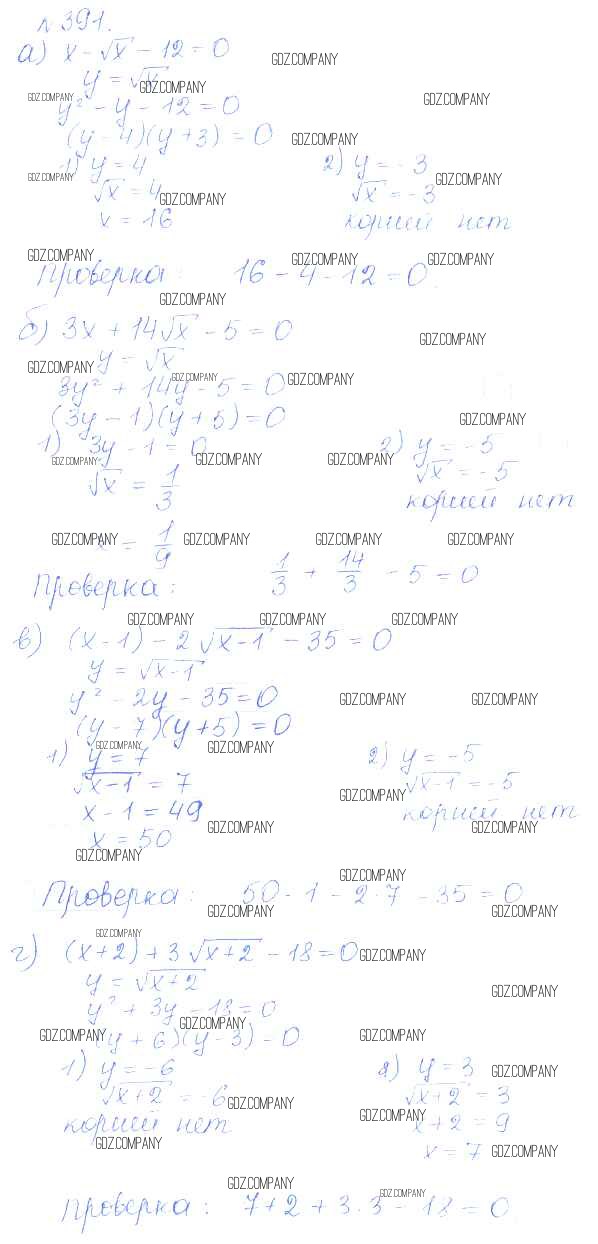 № 391.
а) x - √x - 12 = 0
y = √x
y² - y - 12 = 0
(y - 4)(y + 3) = 0
1) y = 4 2) y = -3
√x = 4 √x = -3
x = 16 корней нет
Проверка: 16 - 4 - 12 = 0.
б) 3x + 14√x - 5 = 0
y = √x
3y² + 14y - 5 = 0
(3y - 1)(y + 5) = 0
1) 3y - 1 = 0 2) y = -5
√x = 1/3 √x = -5
корней нет
x = 1/9
Проверка: 1/3 + 14/3 - 5 = 0
в) (x - 1) - 2√x-1 - 35 = 0
y = √x-1
y² - 2y - 35 = 0
(y - 7)(y + 5) = 0
1) y = 7 2) y = -5
√x-1 = 7 √x-1 = -5
x - 1 = 49 корней нет
x = 50
Проверка: 50 - 1 - 2·7 - 35 = 0
г) (x + 2) + 3√x+2 - 18 = 0
y = √x+2
y² + 3y - 18 = 0
(y + 6)(y - 3) = 0
1) y = -6 2) y = 3
√x+2 = -6 √x+2 = 3
корней нет x + 2 = 9
x = 7
Проверка: 7 + 2 + 3·3 - 18 = 0
GDZ.COMPANY